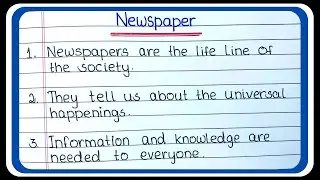 Newspaper
1. Newspapers are the life line of
the society.
2. They tell us about the universal
happenings.
3. Information and knowledge are
needed to everyone.